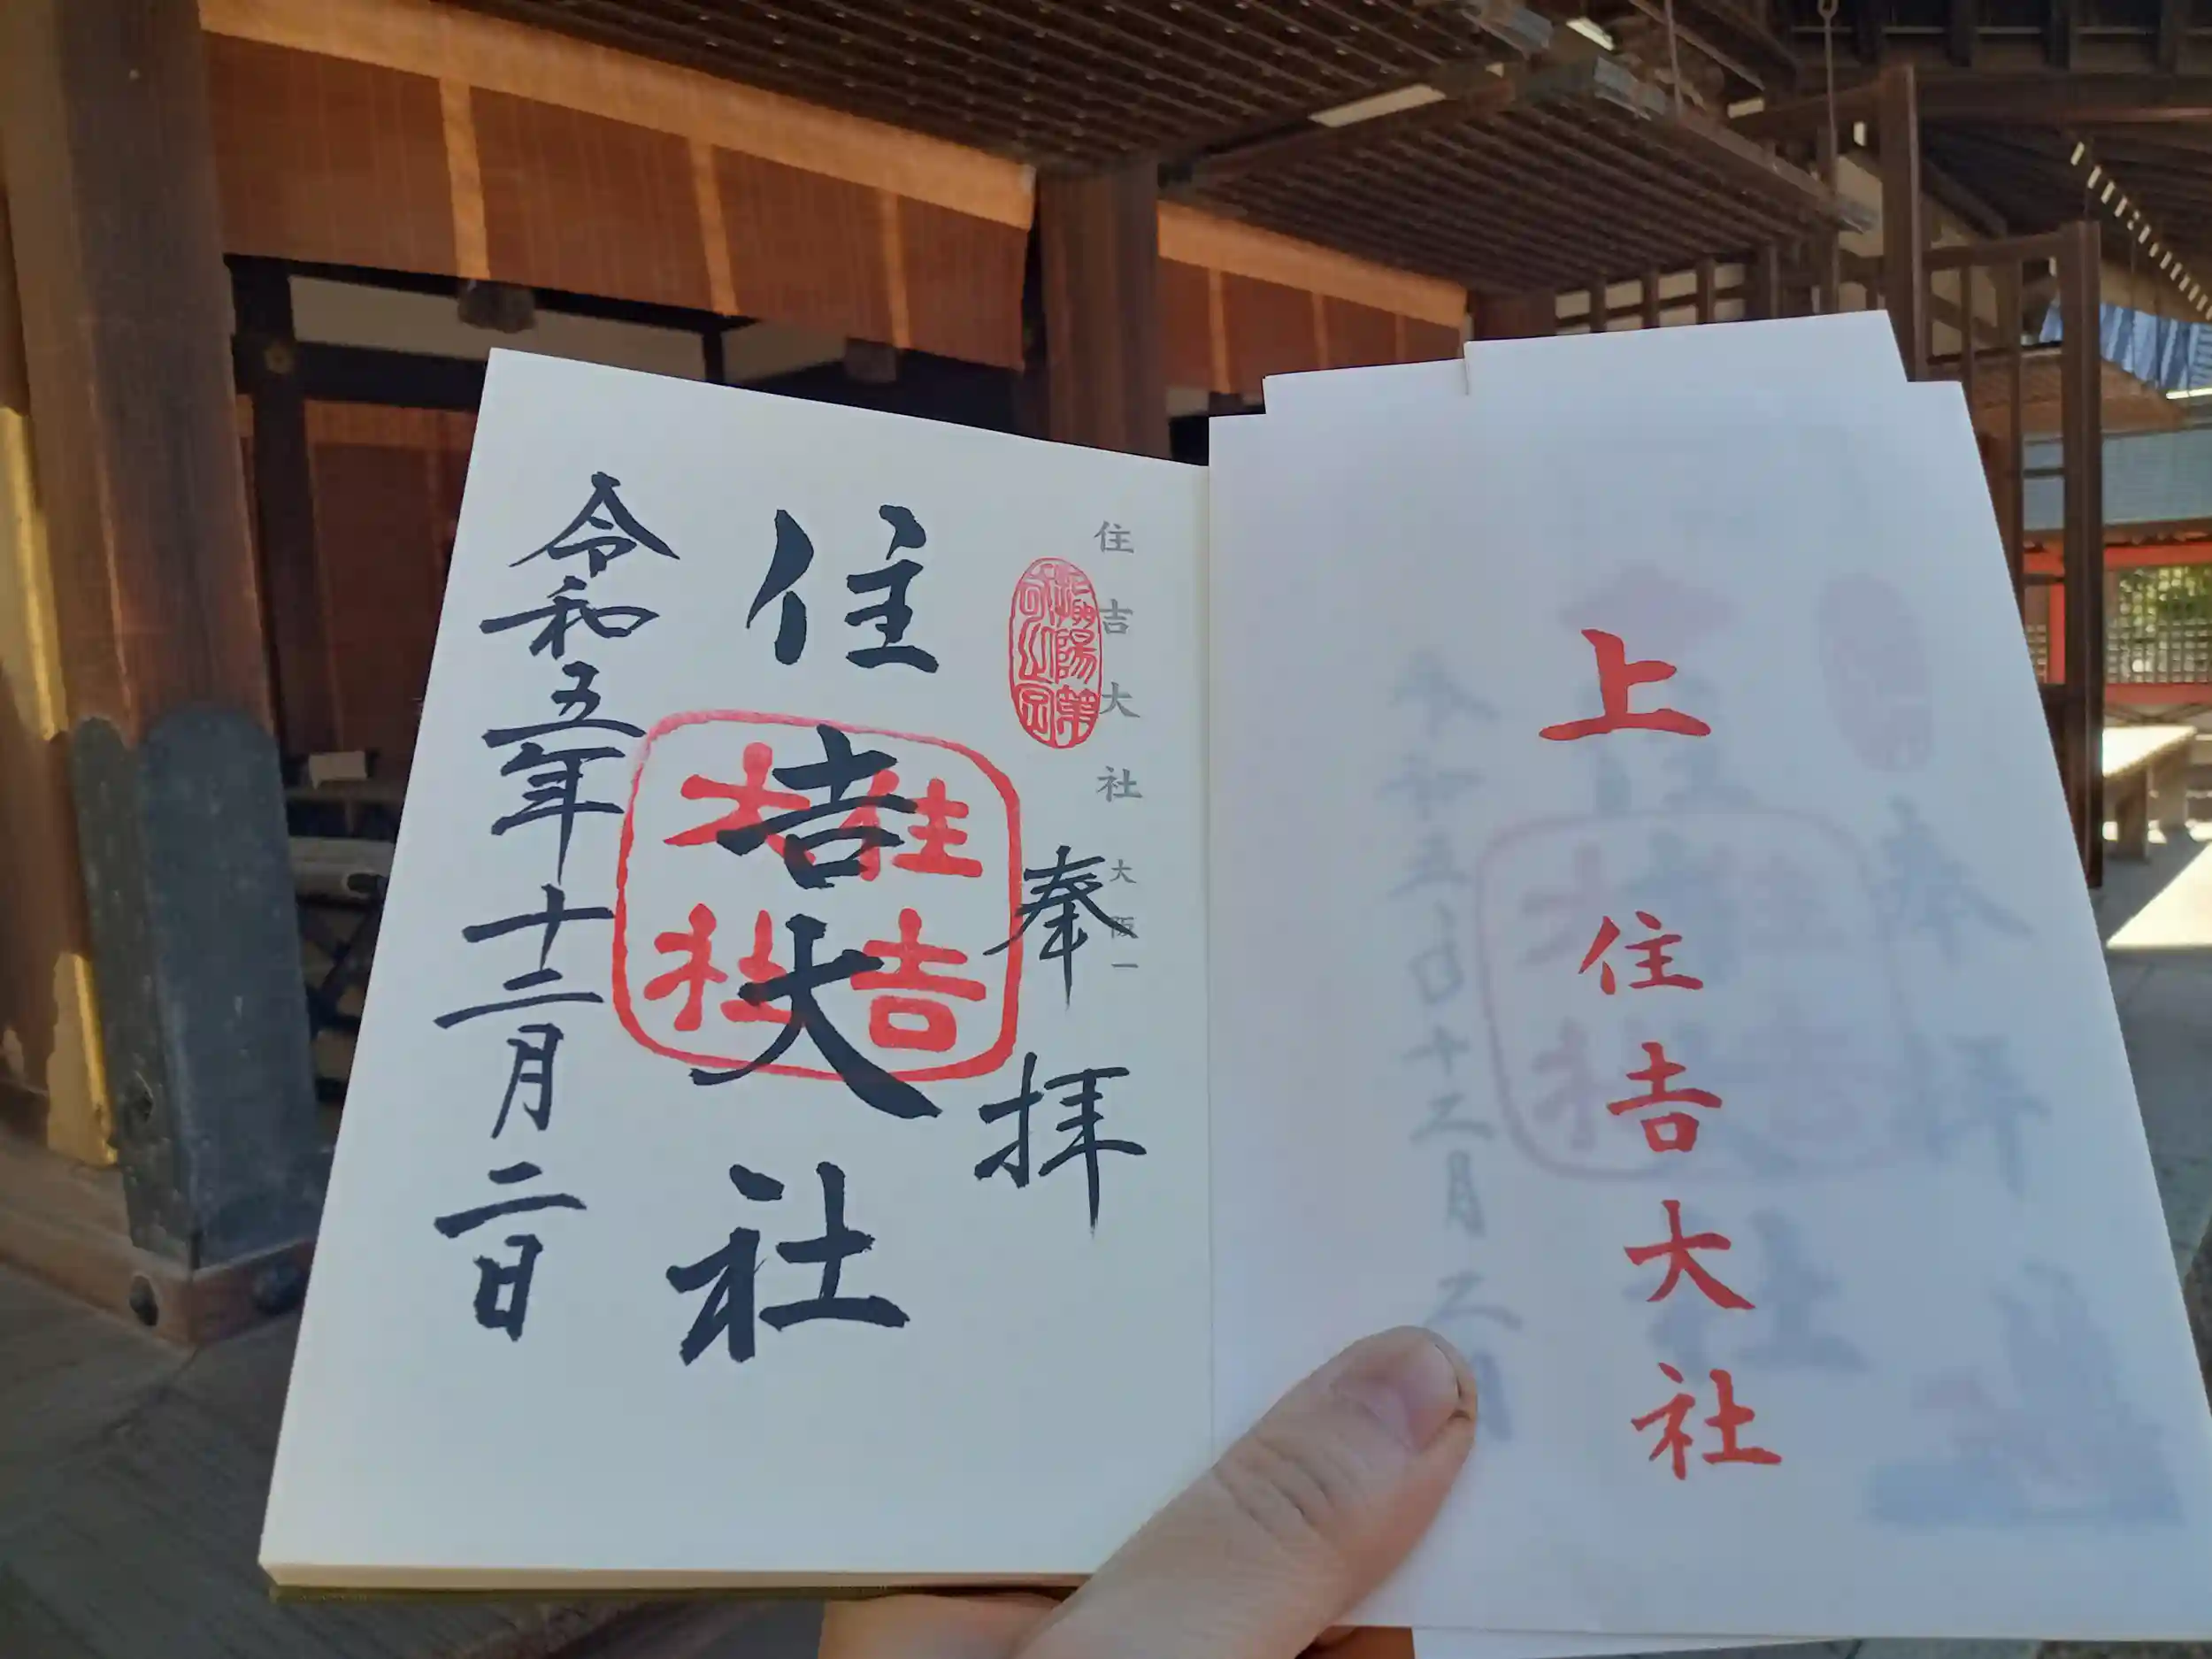 上
住吉大社
住吉大社 大阪一
奉拝
住吉大社
住吉
大社
令和五年十二月二日